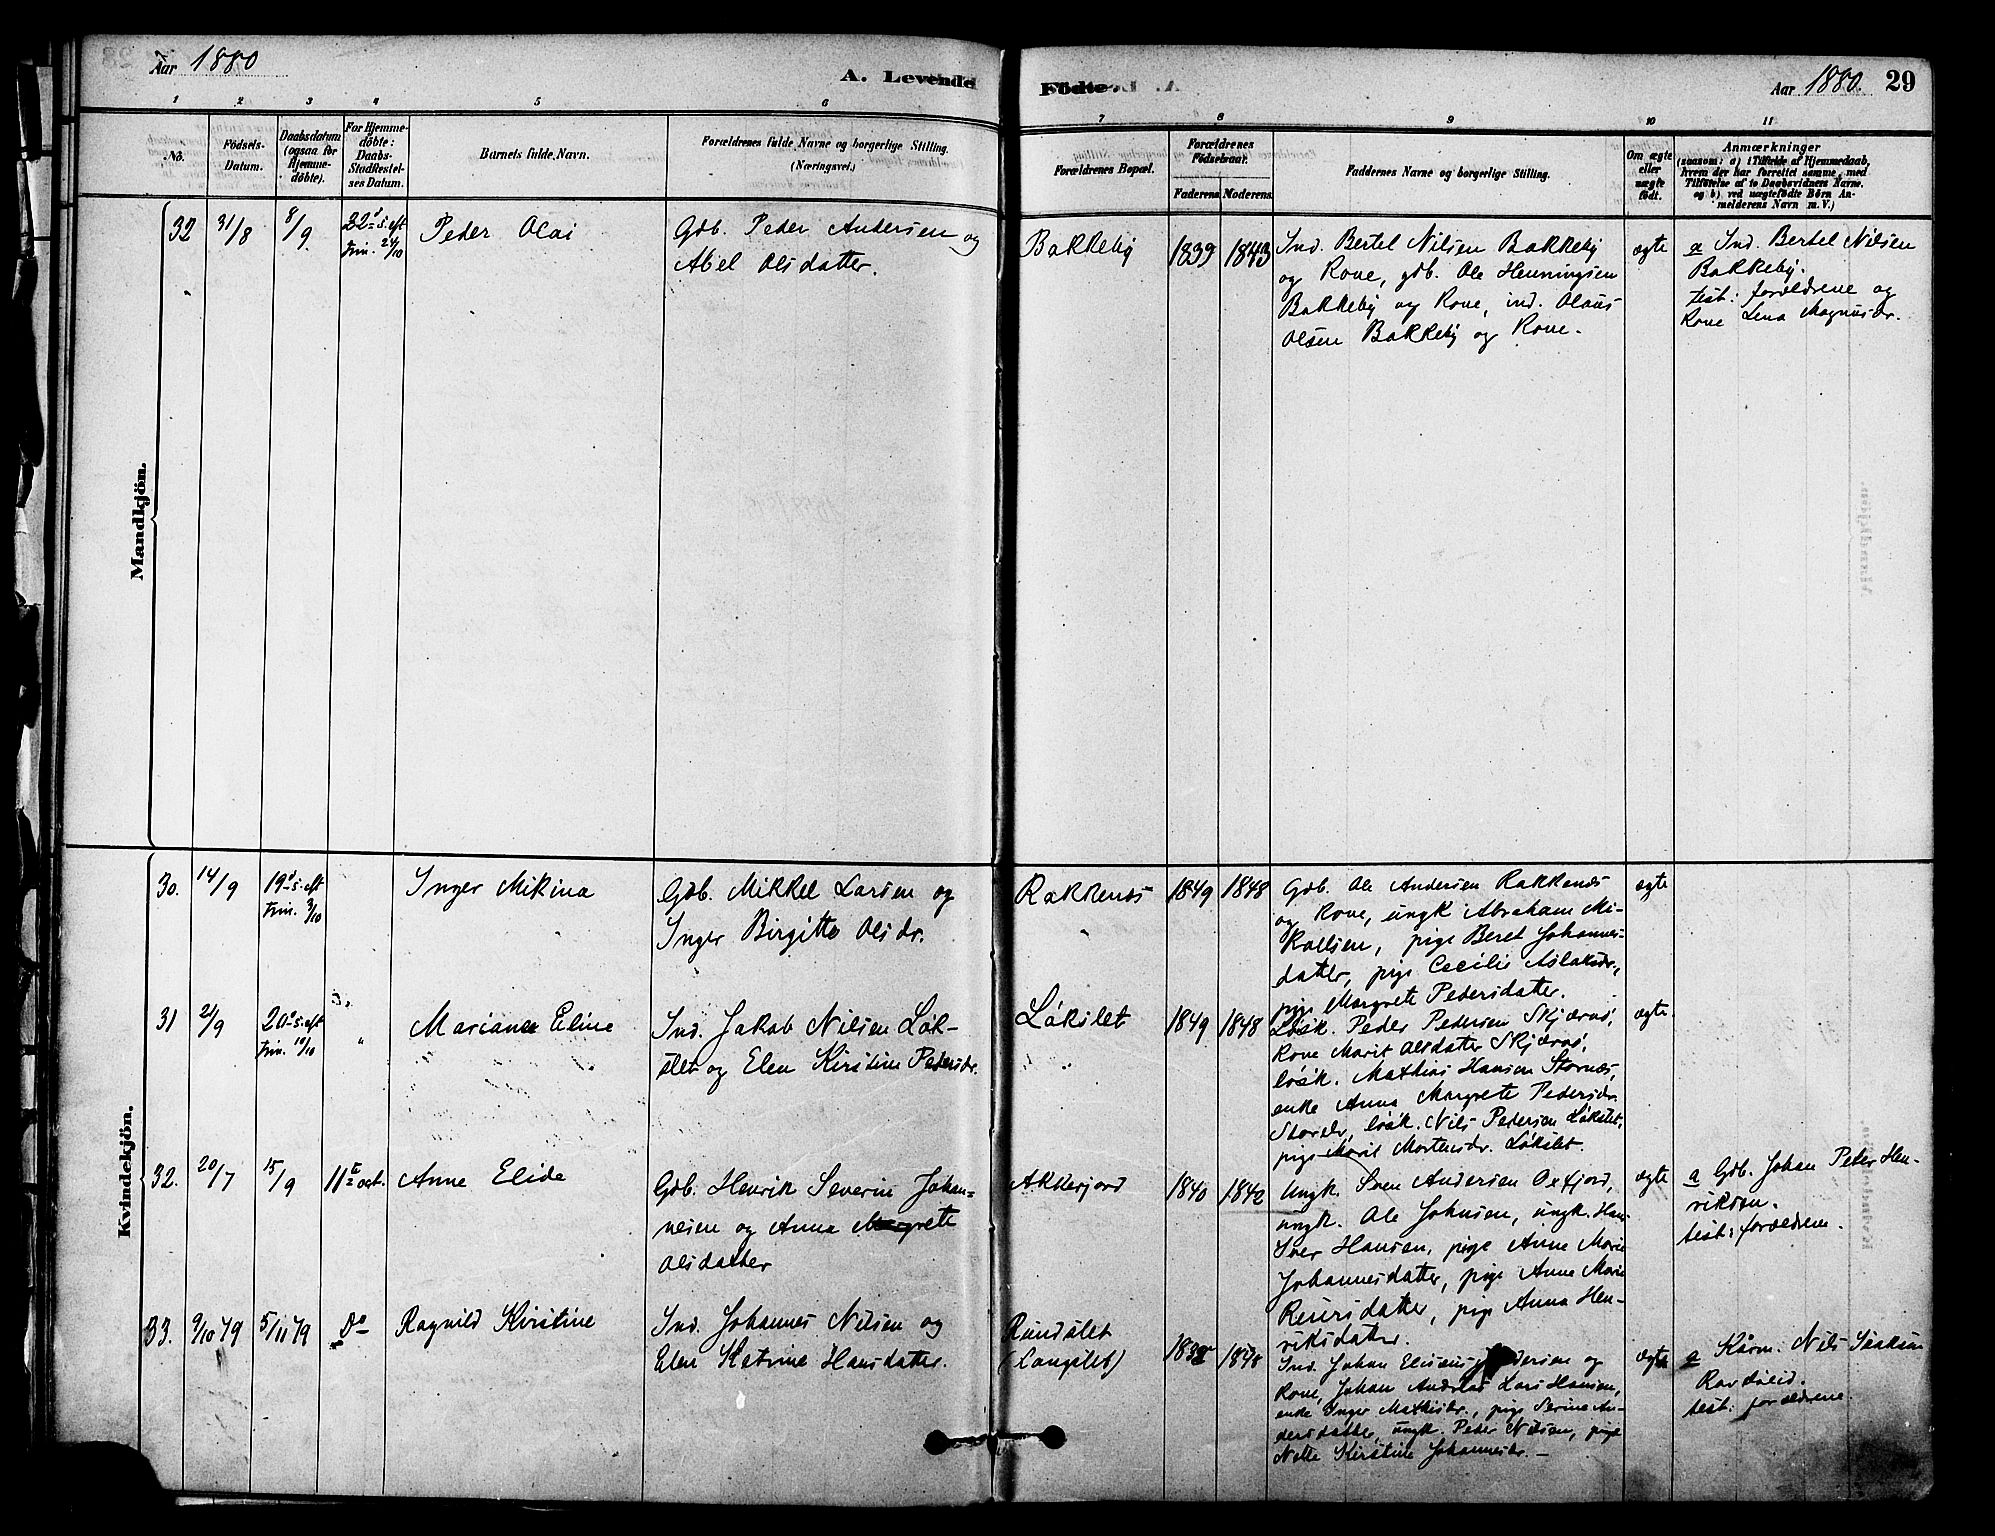 Aar 1880
A. Levende
Födte.
Aar 1880.
29
1 2 3 4 5 6 7 8 9 10 11
No.
Födsels-
Datum.
Daabsdatum
(ogsaa för
Hjemme-
döbte).
For Hjemme-
döbte:
Daabs-
Stadfæstel-
ses Datum.
Barnets fulde Navn.
Forældrenes fulde Navne og borgerlige Stilling.
(Næringsvei.)
Forældrenes Bopæl.
Forældrenes
Födselsaar.
Faderens
Moderens
Faddernes Navne og borgerlige Stilling.
Om ægte
eller
uægte
födt.
Anmærkninger
(saasom: a) i Tilfælde af Hjemmedaab,
hvem der har forrettet samme, med
Tilföielse af to Daabsvidners Navne,
og b) ved uægtefödte Börn An-
melderens Navn m. V.)
Mandkjön.
32
31/8
8/9
22d s. eft
trin. 24/10
Peder Olai
Gdb. Peder Andersen og
Abel Olsdatter.
Bakkeby
1839
1843
Ind. Bertel Nilsen Bakkeby
og Kone, gdb. Ole Henningsen
Bakkeby og Kone, ind. Olaus
Olsen Bakkeby og Kone.
ægte
a Ind. Bertel Nilsen
Bakkeby.
test: forældrene og
Kone Lena Magnusdr.
Kvindekjön.
30.
14/9
19d s. eft
trin. 3/10
Inger Mikina
Gdb. Mikkel Larsen og
Inger Birgitte Olsdr.
Rakkenes
1849
1848
Gdb. Ole Andersen Rakkenes
og Kone, ungk Abraham Mi-
kaelsen, pige Beret Johannes-
datter, pige Cecilie Aslaksdr,
pige Margrete Pedersdatter.
ægte
31
21/9
20d s. eft
trin. 10/10
"
Mariane Eline
Ind. Jakob Nilsen Løk-
slet og Elen Kirstine Pedersdr.
Løkslet
1849
1848
Løsk. Peder Pedersen Skjærvø,
Kone Marit Olsdatter Skjærvø,
løsk. Mathias Hansen Stornæs,
enke Anna Margrete Pedersdr.
løsk. Nils Pedersen Løkslet,
pige Marit Mortensdr. Løkslet.
ægte.
32.
20/7
15/9
11te oct.
Anne Elide
Gdb. Henrik Severin Johan-
nesen og Anna Margrete
Olsdatter
Akslefjord
1840
1842
Ungk. Sven Andersen Oxfjord,
ungk. Ole Johnsen, ungk. Han
Iver Hansen, pige Anne Marie
Johannesdatter, pige Anne Marie
Reiersdatter, pige Anna Hen-
riksdatter.
ægte
a Gdb. Johan Peter Hen-
riksen.
test: forældrene.
33.
9/10 79
5/11 79
Do
Ragnild Kirstine
Ind. Johannes Nilsen og
Elen Katrine Hansdatter.
Rundslet
(Langslet)
1848
Ind. Johan Eliseus Pedersen og
Kone, Johan Andreas Lars Hansen,
enke Inger Mathisdr., pige Serine An-
dersdatter, ungk. Peder Nilsen, pige
Nelle Kirstine Johannesdr. —
ægte
a Kårm. Nils Isaksen
test: forældrene.